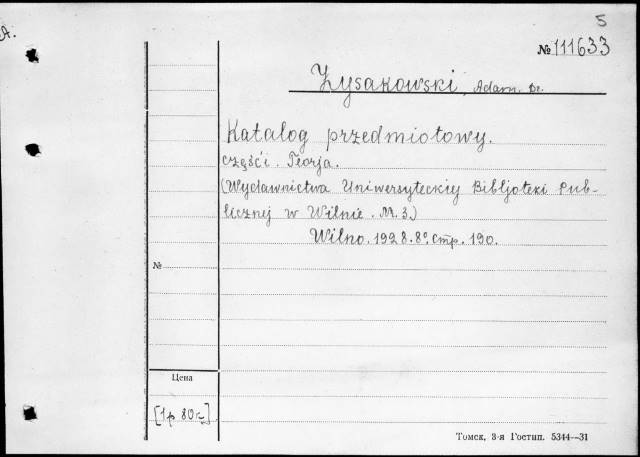 5
А.
№ 111633
Łysakowski, Adam. Dr.
Katalog przedmiotowy.
część I. Teorja.
(Wydawnictwa Uniwersyteckiej Bibljoteki Pub-
licznej w Wilnie. № 3.)
Wilno. 1928. 8°. стр. 190.
№
Цена
[1р 80к]
Томск, 3-я Гостип. 5344—31